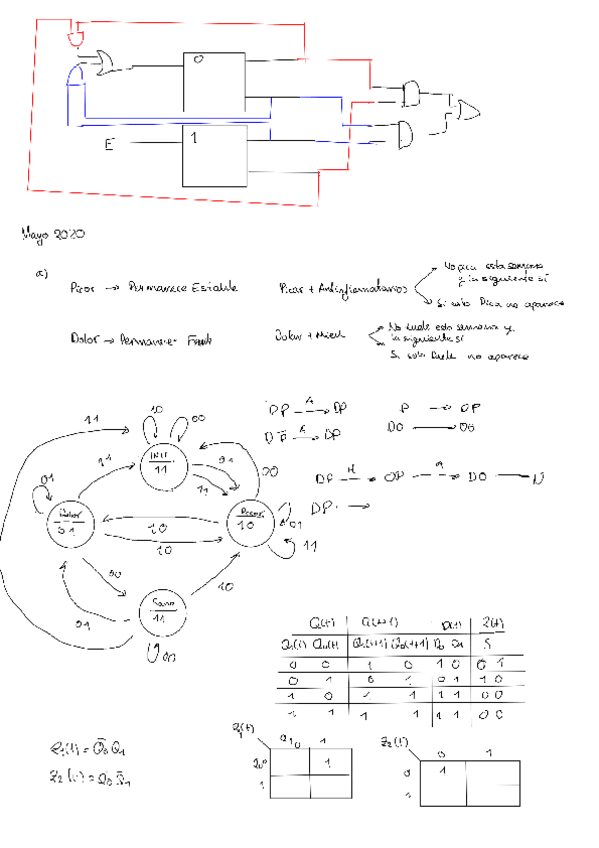 0
E
1
Mayo 2020
a)
Picor → Permanece Estable
Picor + Antiinflamatorios
No pica esta semana
y la siguiente sí
Si esto Pica no aparece
Dolor → Permanecer
Dolor +
No duele esta semana y
la siguiente sí
Si solo Duele no aparece
11
10
00
11
01
11
01
20
Init
11
Dolor
01
Picor
10
10
10
01
11
00
01
10
Sano
11
00
DP → DP
P → OP
DO → OO
DP → OP → DO → D
DP · →
Q(t) Q(t+1) D(t) Z(t)
Q1(t) Q0(t) Q1(t+1) Q0(t+1) D0 D1 S
0 0 1 0 1 0 0 1
0 1 0 1 0 1 1 0
1 0 1 1 1 1 0 0
1 1 1 1 1 1 0 0
Z1(t) = Q̅0 Q1
Z2(t) = Q0 Q̅1
Z1(t)
0 1
0 1
1
Z2(t)
0 1
0 1